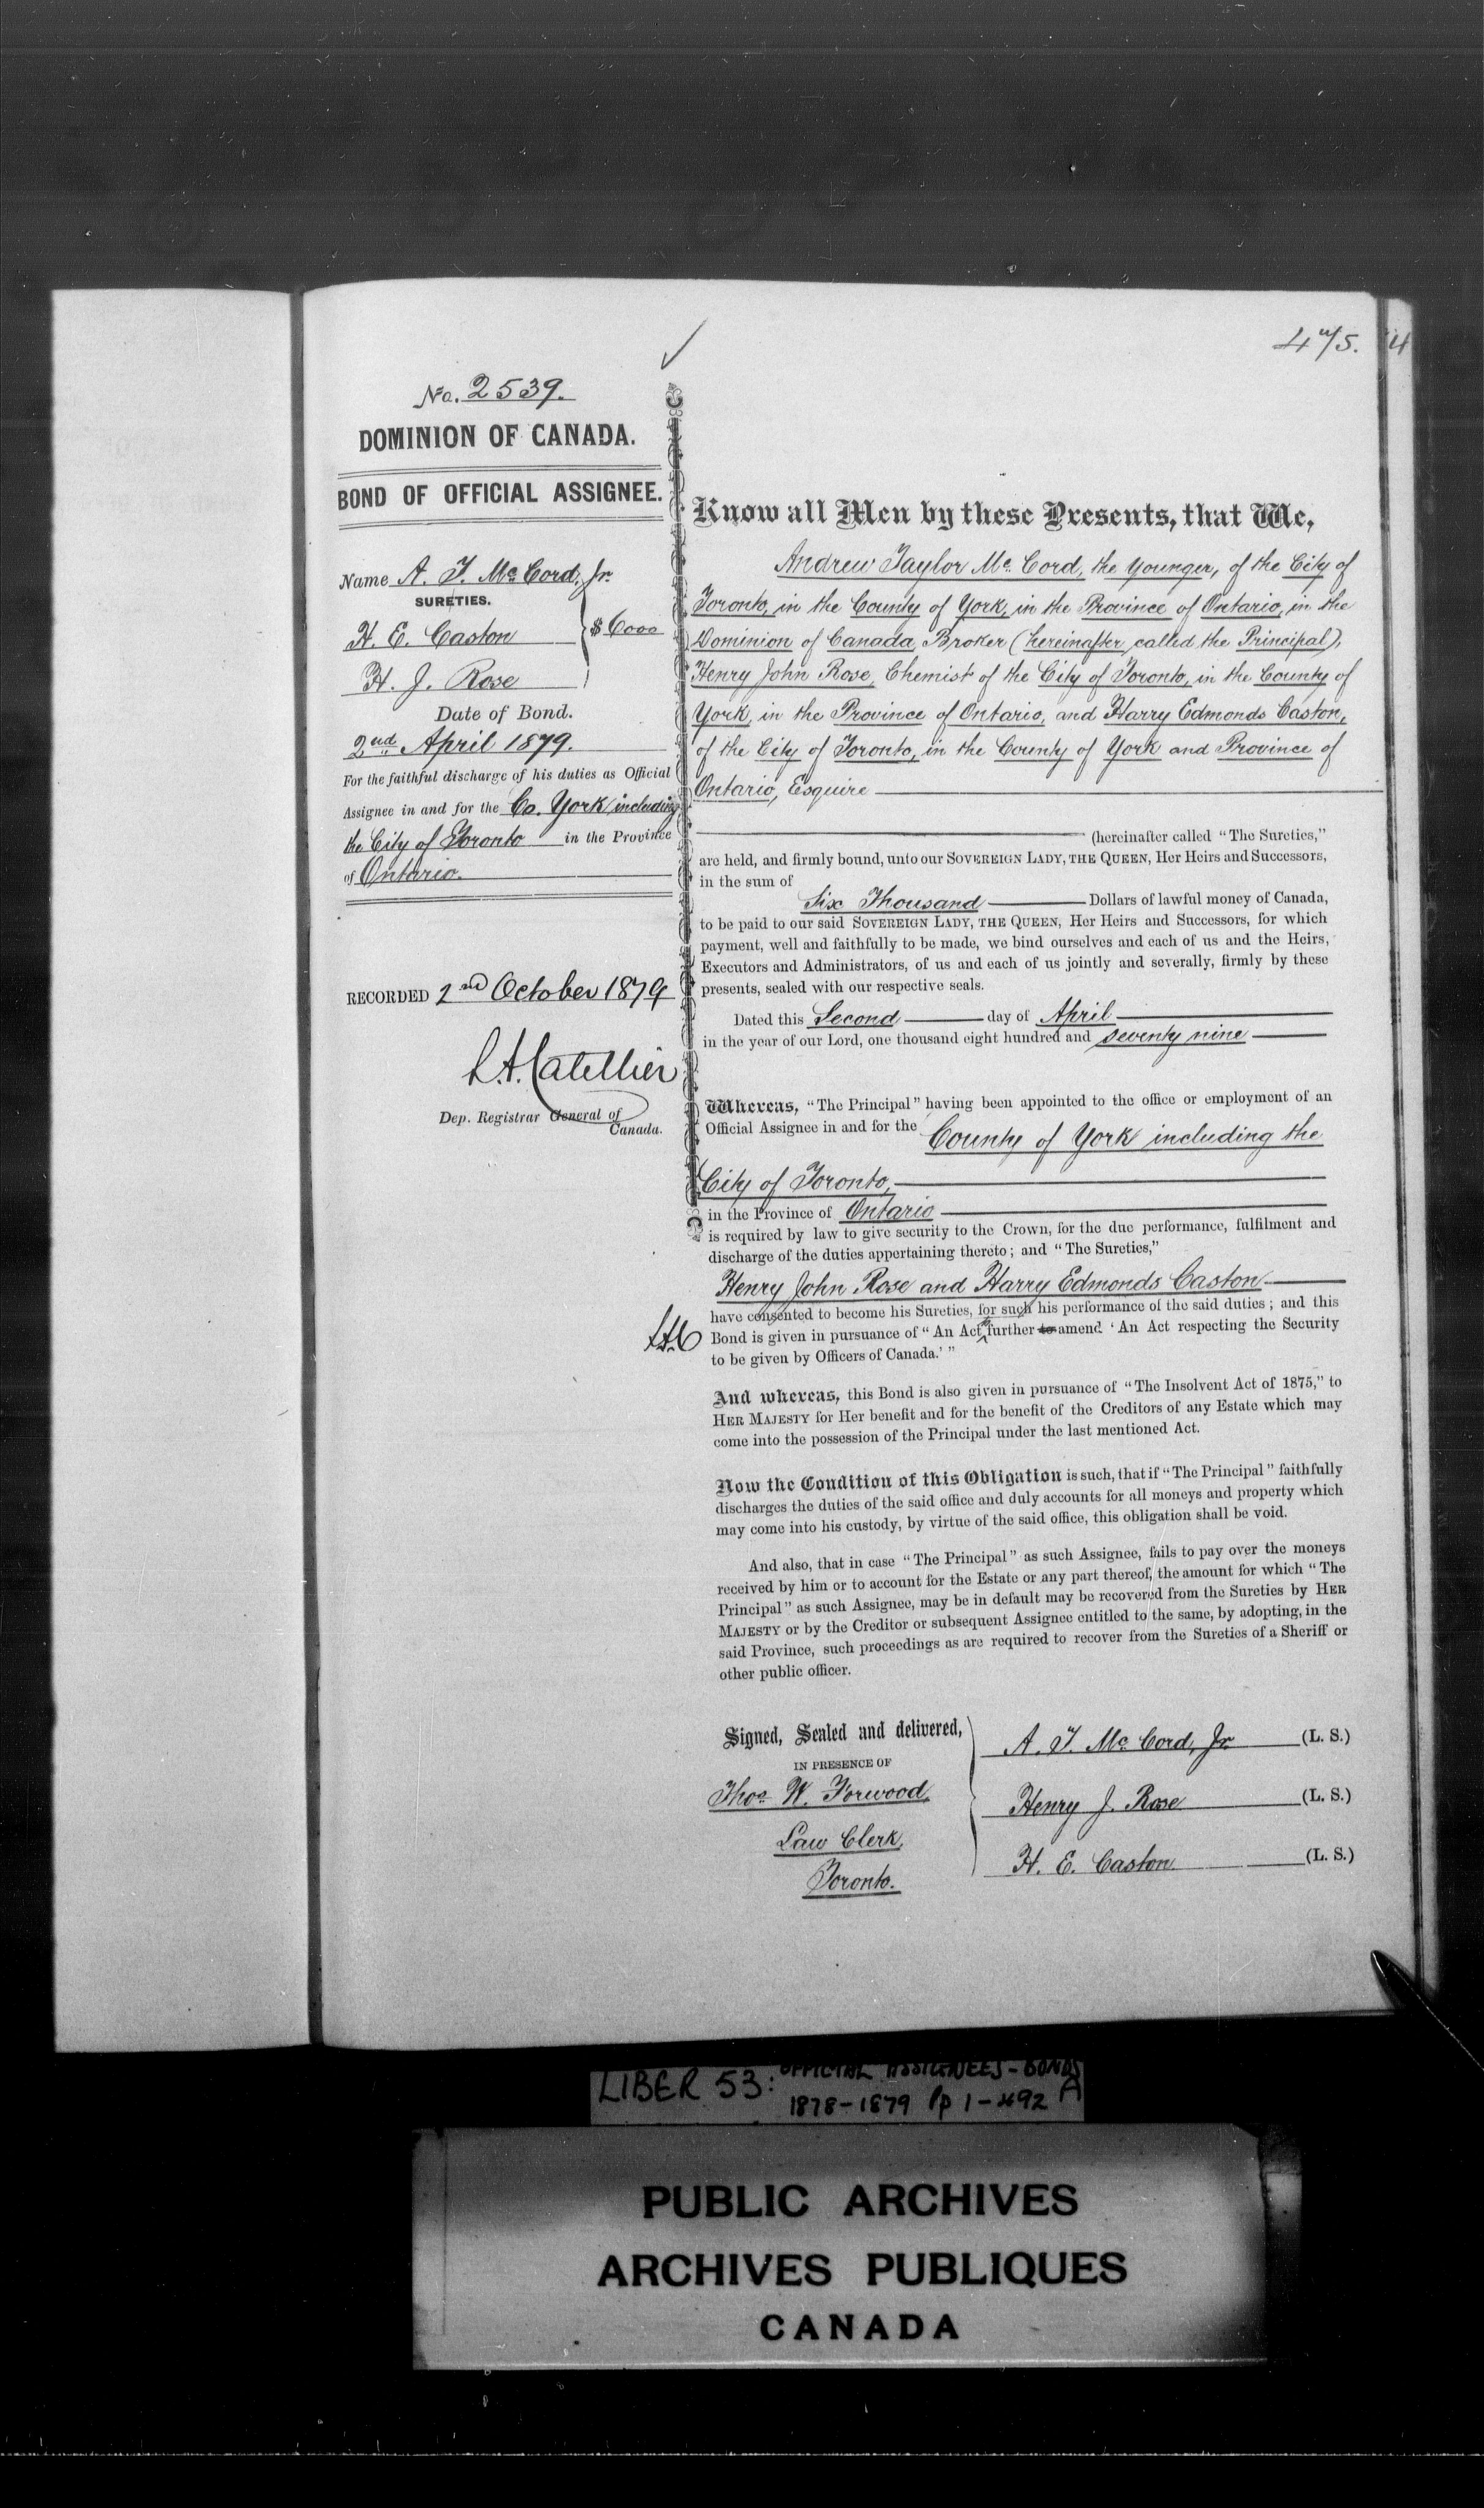 475.
4
No. 2539.
DOMINION OF CANADA.
BOND OF OFFICIAL ASSIGNEE.
Name A. T. McCord, Jr.
SURETIES.
H. E. Caston
$6000
H. J. Rose
Date of Bond.
2nd April 1879.
For the faithful discharge of his duties as Official
Assignee in and for the Co. York including
the City of Toronto in the Province
of Ontario.
RECORDED 2nd October 1879
L.A. Catellier
Dep. Registrar General of
Canada.
Know all Men by these Presents, that We,
Andrew Taylor McCord, the Younger, of the City of
Toronto, in the County of York, in the Province of Ontario, in the
Dominion of Canada, Broker (hereinafter called the Principal),
Henry John Rose, Chemist of the City of Toronto, in the County of
York, in the Province of Ontario, and Harry Edmonds Caston,
of the City of Toronto, in the County of York and Province of
Ontario, Esquire
(hereinafter called "The Sureties,"
are held, and firmly bound, unto our SOVEREIGN LADY, THE QUEEN, Her Heirs and Successors,
in the sum of
Six Thousand Dollars of lawful money of Canada,
to be paid to our said SOVEREIGN LADY, THE QUEEN, Her Heirs and Successors, for which
payment, well and faithfully to be made, we bind ourselves and each of us and the Heirs,
Executors and Administrators, of us and each of us jointly and severally, firmly by these
presents, sealed with our respective seals.
Dated this Second day of April
in the year of our Lord, one thousand eight hundred and seventy nine
Whereas, "The Principal" having been appointed to the office or employment of an
Official Assignee in and for the County of York including the
City of Toronto,
in the Province of Ontario
is required by law to give security to the Crown, for the due performance, fulfilment and
discharge of the duties appertaining thereto; and "The Sureties,"
Henry John Rose and Harry Edmonds Caston
have consented to become his Sureties, for such his performance of the said duties; and this
LAC Bond is given in pursuance of "An Act further to amend 'An Act respecting the Security
to be given by Officers of Canada.'"
And whereas, this Bond is also given in pursuance of "The Insolvent Act of 1875," to
HER MAJESTY for Her benefit and for the benefit of the Creditors of any Estate which may
come into the possession of the Principal under the last mentioned Act.
Now the Condition of this Obligation is such, that if "The Principal" faithfully
discharges the duties of the said office and duly accounts for all moneys and property which
may come into his custody, by virtue of the said office, this obligation shall be void.
And also, that in case "The Principal" as such Assignee, fails to pay over the moneys
received by him or to account for the Estate or any part thereof, the amount for which "The
Principal" as such Assignee, may be in default may be recovered from the Sureties by HER
MAJESTY or by the Creditor or subsequent Assignee entitled to the same, by adopting, in the
said Province, such proceedings as are required to recover from the Sureties of a Sheriff or
other public officer.
Signed, Sealed and delivered,
IN PRESENCE OF
Thos W. Forwood,
Law Clerk,
Toronto.
A. T. McCord, Jr. (L. S.)
Henry J. Rose (L. S.)
H. E. Caston (L. S.)
LIBER 53: OFFICIAL ASSIGNEES - BONDS
1878-1879 pp 1-492 A
PUBLIC ARCHIVES
ARCHIVES PUBLIQUES
CANADA